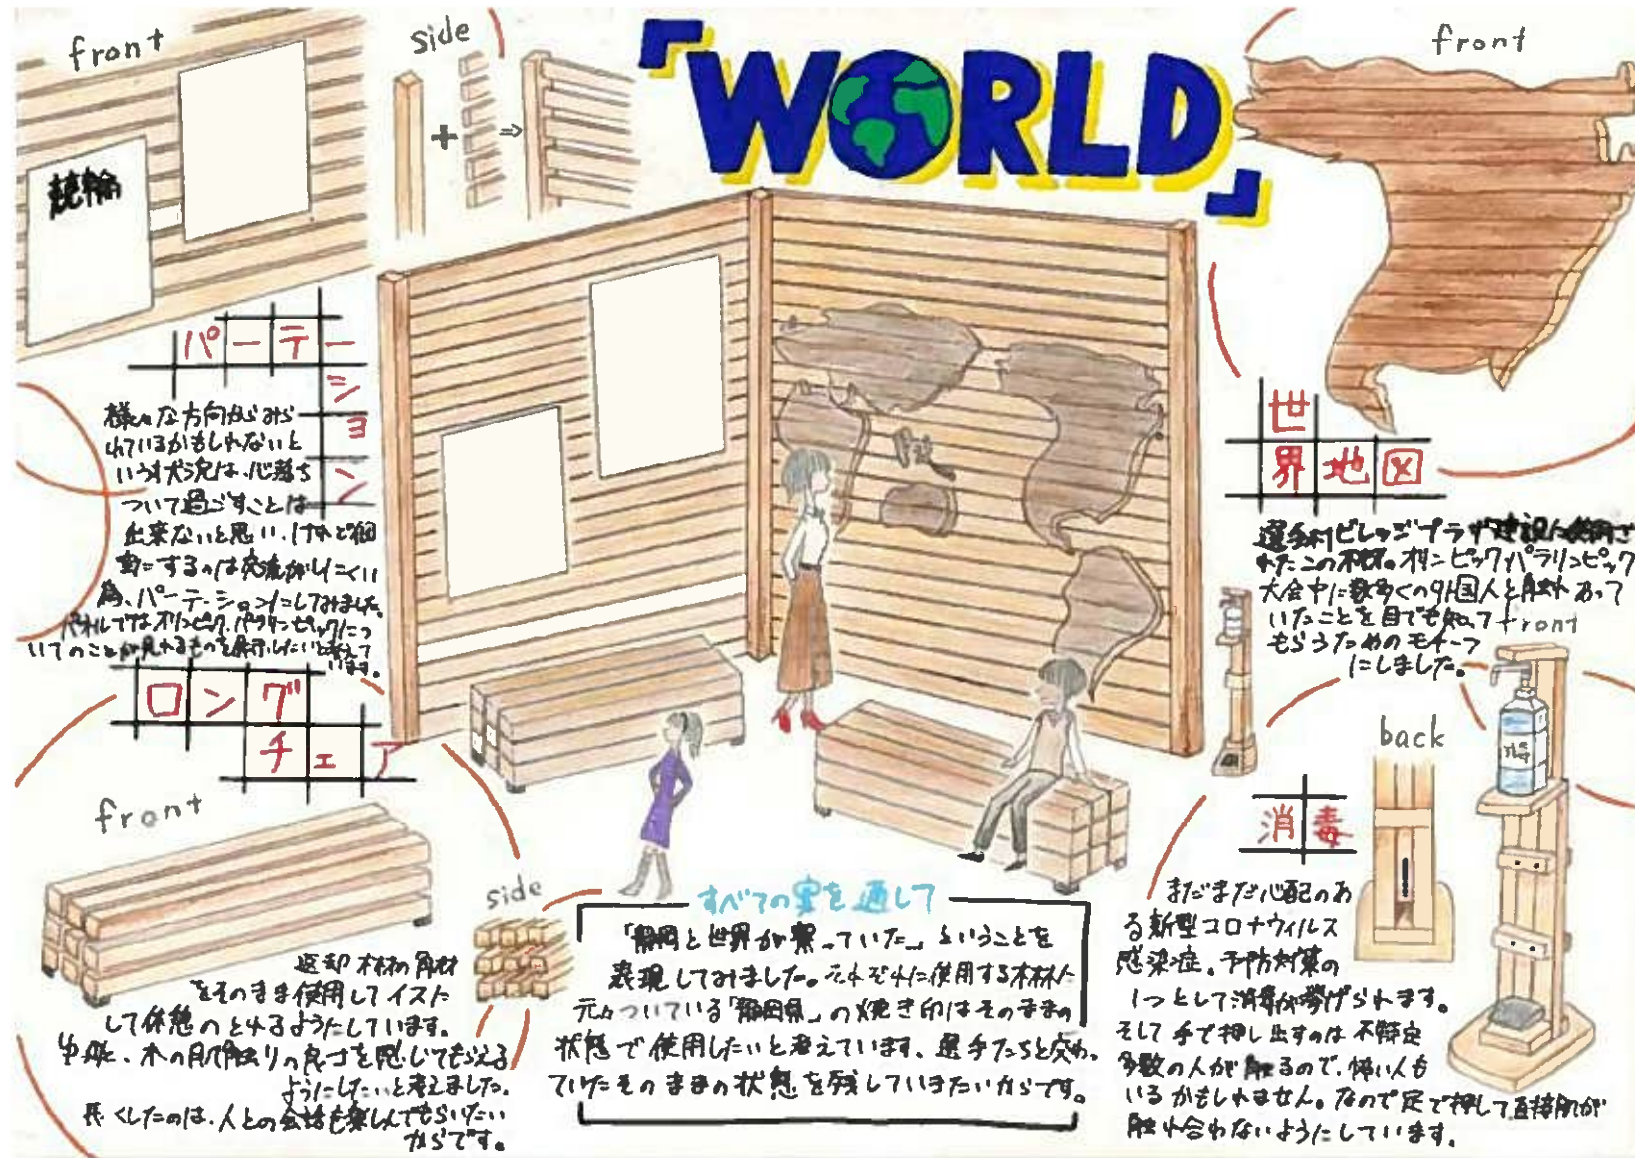 「WORLD」
front
side
競輪
パーテーション
様々な方向からみら
れているかもしれないと
いう状況は、心落ち
ついて過ごすことは
出来ないと思い、けれど個
室にするのは交流がしにくい
為、パーテーションにしてみました。
パネルではオリンピック、パラリンピックにつ
いてのことが見れるものを展示したいと考えて
います。
ロングチェア
front
side
返却木材の角材
をそのまま使用してイスに
して休憩のとれるようにしています。
木の肌触りの良さを感じてもらえる
ようにしたいと考えました。
長くしたのは、人との会話も楽しんでもらいたい
からです。
すべての実を通して
「静岡と世界が繋っていた」ということを
表現してみました。それぞれに使用する木材に
元々ついている「静岡県」の焼き印はそのままの
状態で使用したいと考えています。選手たちと交わっ
ていたそのままの状態を残していきたいからです。
front
世界地図
選手村ビレッジプラザ建設に使用さ
れたこの木材。オリンピック、パラリンピック
大会中に数多くの外国人と触れあって
いたことを目でも知って
もらうためのモチーフ
にしました。
front
back
消毒
まだまだ心配のあ
る新型コロナウィルス
感染症。予防対策の
1つとして消毒が挙げられます。
そして手で押し出すのは不特定
多数の人が触るので、怖い人も
いるかもしれません。なので足で押して直接肌が
触れ合わないようにしています。